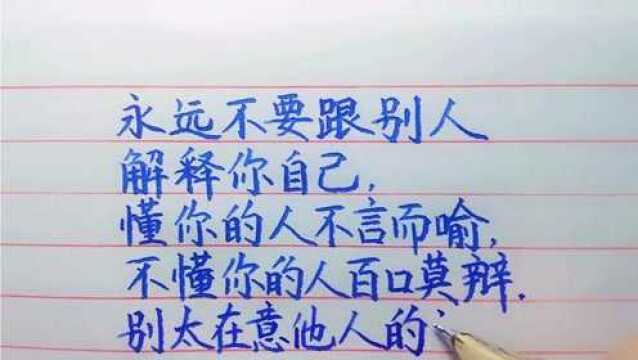 永远不要跟别人
解释你自己，
懂你的人不言而喻，
不懂你的人百口莫辩．
别太在意他人的